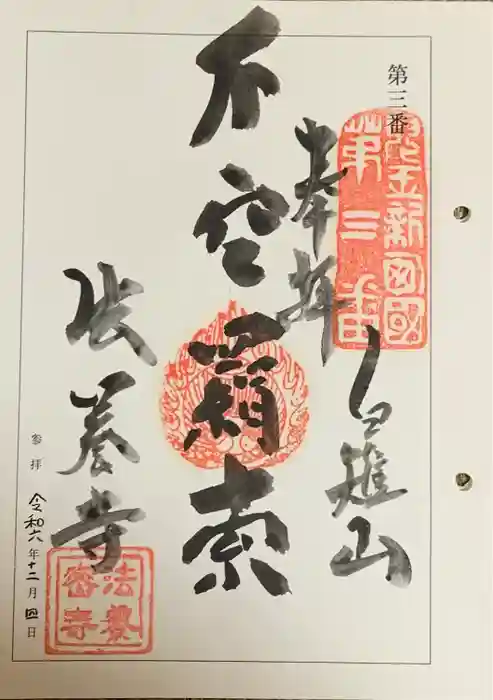 第三番
第三番
奉拝
白雉山
不空羂索
法養寺
法養
密寺
参拝 令和六年十二月四日